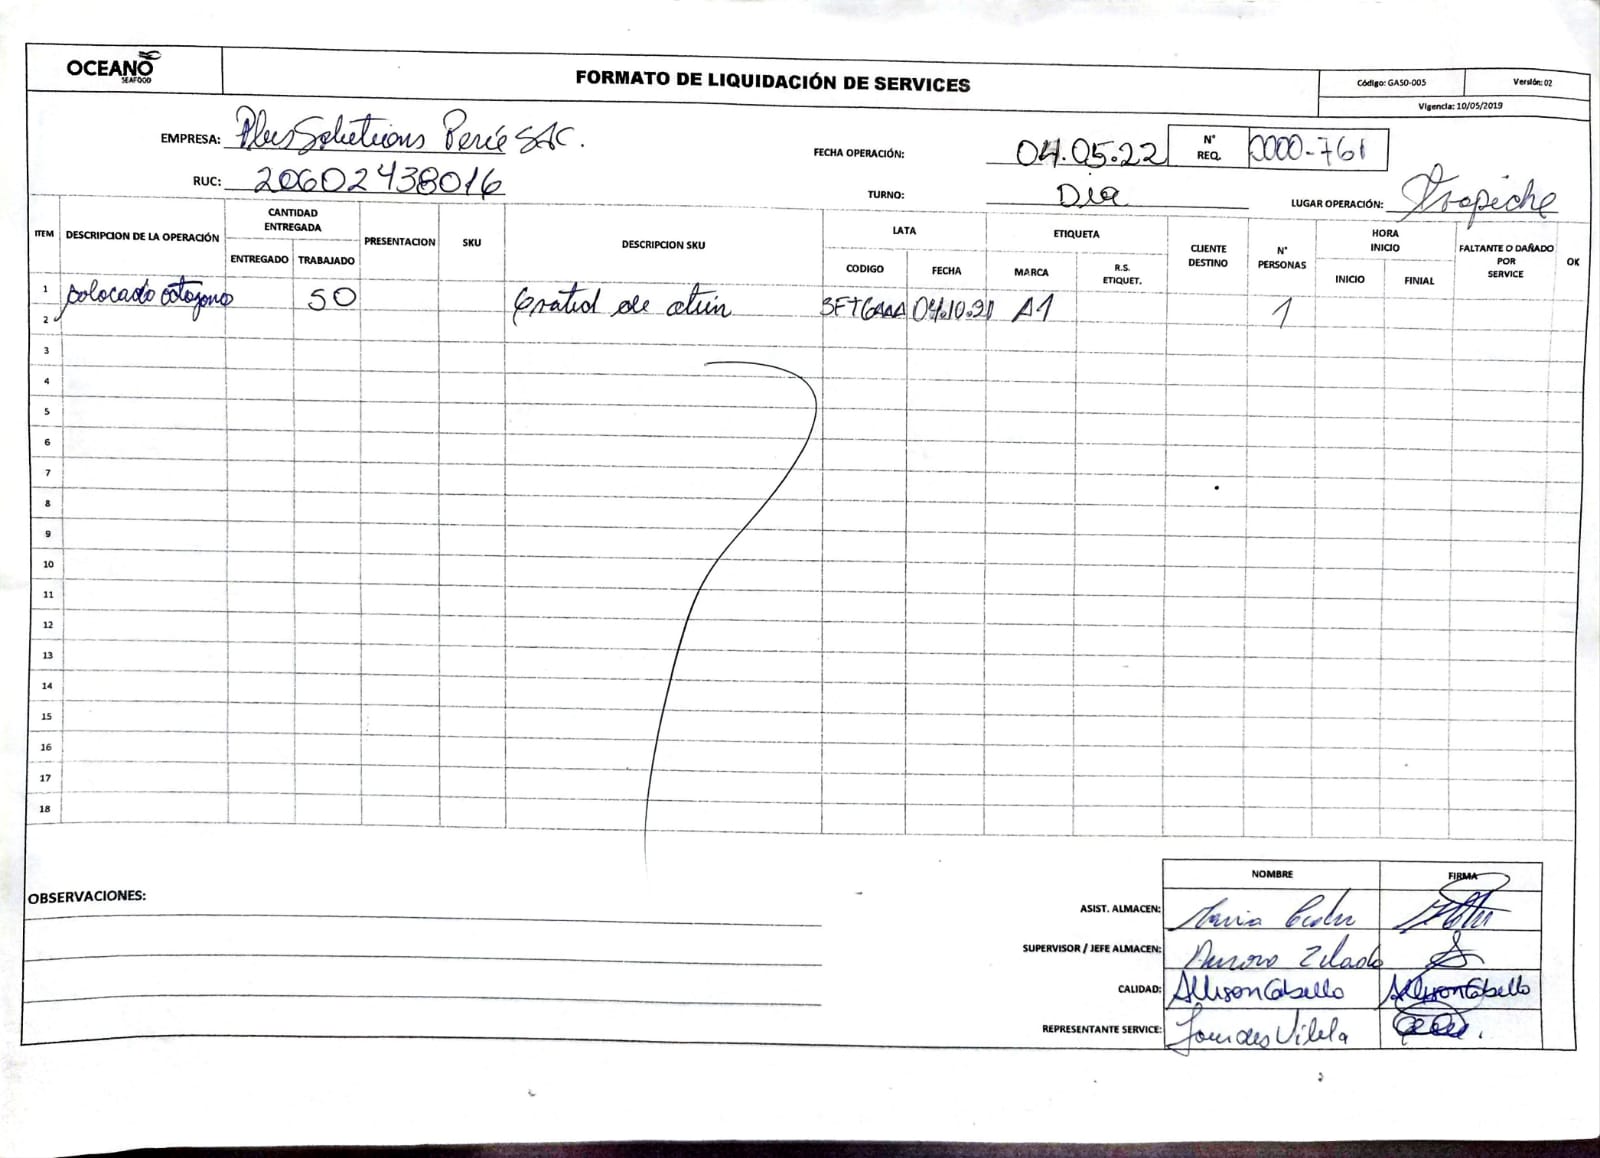 OCEANO
SEAFOOD
FORMATO DE LIQUIDACIÓN DE SERVICES
Código: GASO-005
Versión: 02
Vigencia: 10/05/2019
EMPRESA: Plus Solutions Perú SAC.
FECHA OPERACIÓN: 04.05.22
N° REQ. 0000-761
RUC: 20602438016
TURNO: Dia
LUGAR OPERACIÓN: Trapiche
ITEM DESCRIPCION DE LA OPERACIÓN CANTIDAD ENTREGADA PRESENTACION SKU DESCRIPCION SKU LATA ETIQUETA CLIENTE DESTINO N° PERSONAS HORA INICIO FALTANTE O DAÑADO POR SERVICE OK
ENTREGADO TRABAJADO CODIGO FECHA MARCA R.S. ETIQUET. INICIO FINIAL
1 colocado octogono 50 Grated de atún 04.10.21 A1 1
2
3
4
5
6
7
8
9
10
11
12
13
14
15
16
17
18
OBSERVACIONES:
NOMBRE FIRMA
ASIST. ALMACEN: Maria
SUPERVISOR / JEFE ALMACEN:
CALIDAD: Allison Cabello Allison Cabello
REPRESENTANTE SERVICE: Lourdes Vilela